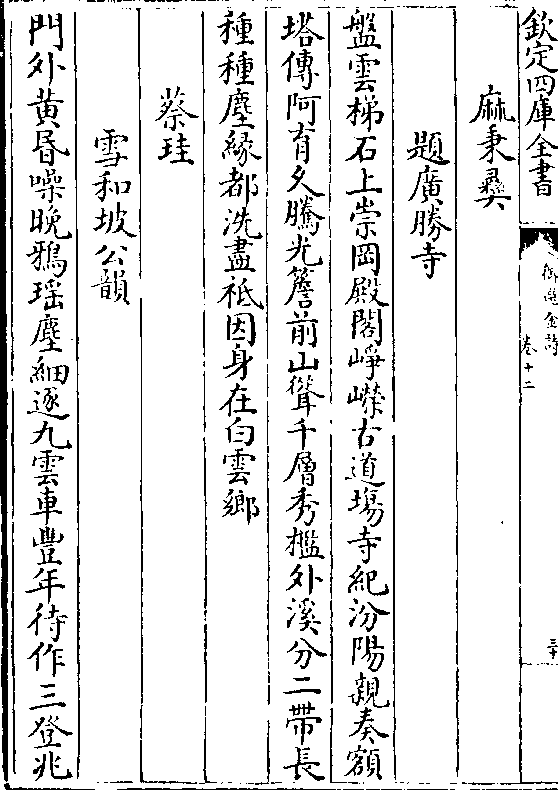 欽定四庫全書
御選金詩
卷十二
三十
麻秉彝
題廣勝寺
盤雲梯石上崇岡殿閣崢嶸古道場寺紀汾陽親奏額
塔傳阿育久騰光簷前山聳千層秀檻外溪分二帶長
種種塵緣都洗盡祗因身在白雲鄉
蔡珪
雪和坡公韻
門外黃昏噪晚鴉瑶塵細逐九雲車豐年待作三登兆